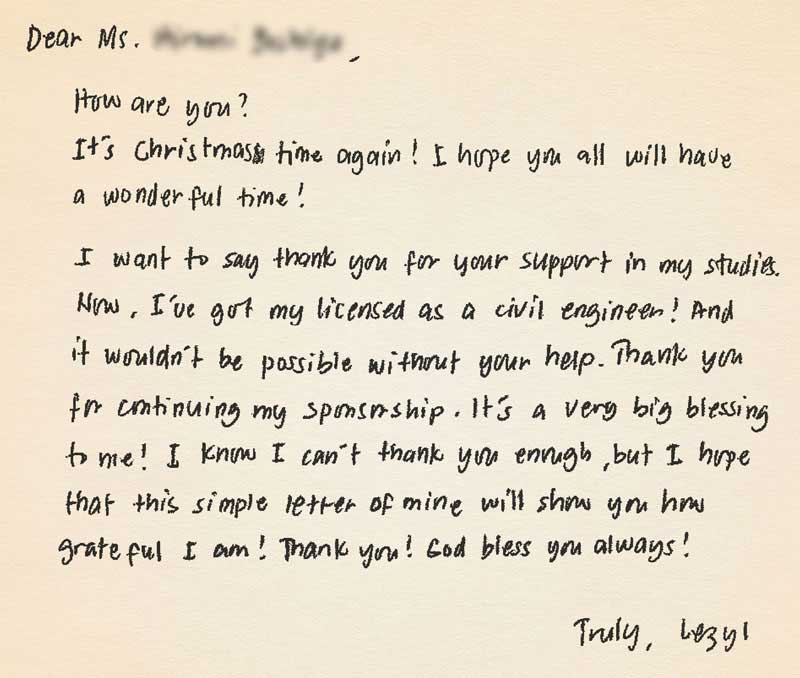 Dear Ms. ,
How are you?
It's Christmas time again! I hope you all will have
a wonderful time!
I want to say thank you for your support in my studies.
Now, I've got my licensed as a civil engineer! And
it wouldn't be possible without your help. Thank you
for continuing my sponsorship. It's a very big blessing
to me! I know I can't thank you enough, but I hope
that this simple letter of mine will show you how
grateful I am! Thank you! God bless you always!
Truly, Lezyl